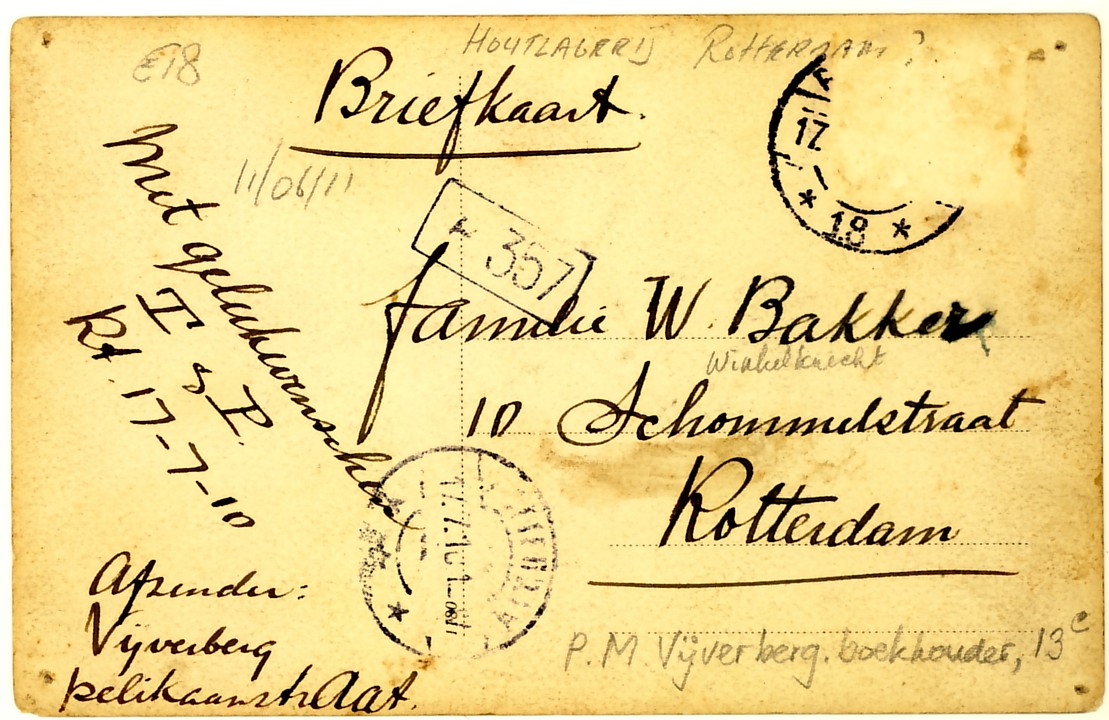 E18
HOUTZAGERIJ ROTTERDAM ?
Briefkaart.
11/06/11
17.
* 18 *
357
Met gelukwenschen
T & P.
Rt. 17-7-10
Familie W. Bakker
Winkelknecht
10 Schommelstraat
Rotterdam
17.7.10
Afzender:
Vijverberg
pelikaanstraat.
P. M. Vijverberg. boekhouder, 13c